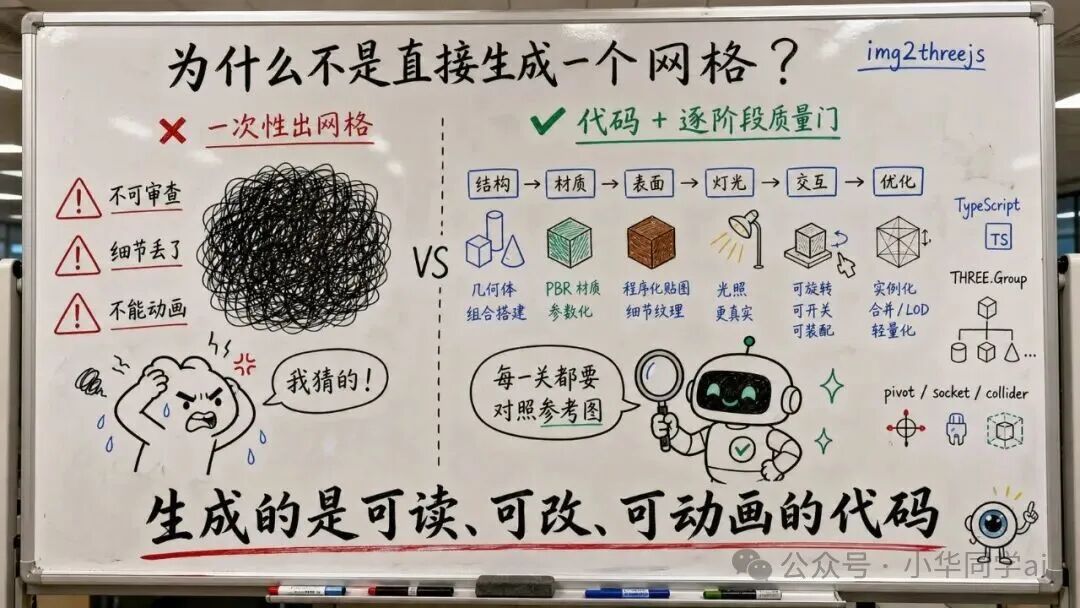 为什么不是直接生成一个网格？
img2threejs
一次性出网格
不可审查
细节丢了
不能动画
我猜的！
VS
代码 + 逐阶段质量门
结构 → 材质 → 表面 → 灯光 → 交互 → 优化
几何体
组合搭建
PBR 材质
参数化
程序化贴图
细节纹理
光照
更真实
可旋转
可开关
可装配
实例化
合并/LOD
轻量化
每一关都要
对照参考图
TypeScript
TS
THREE.Group
...
pivot / socket / collider
生成的是可读、可改、可动画的代码
公众号 · 小华同学ai